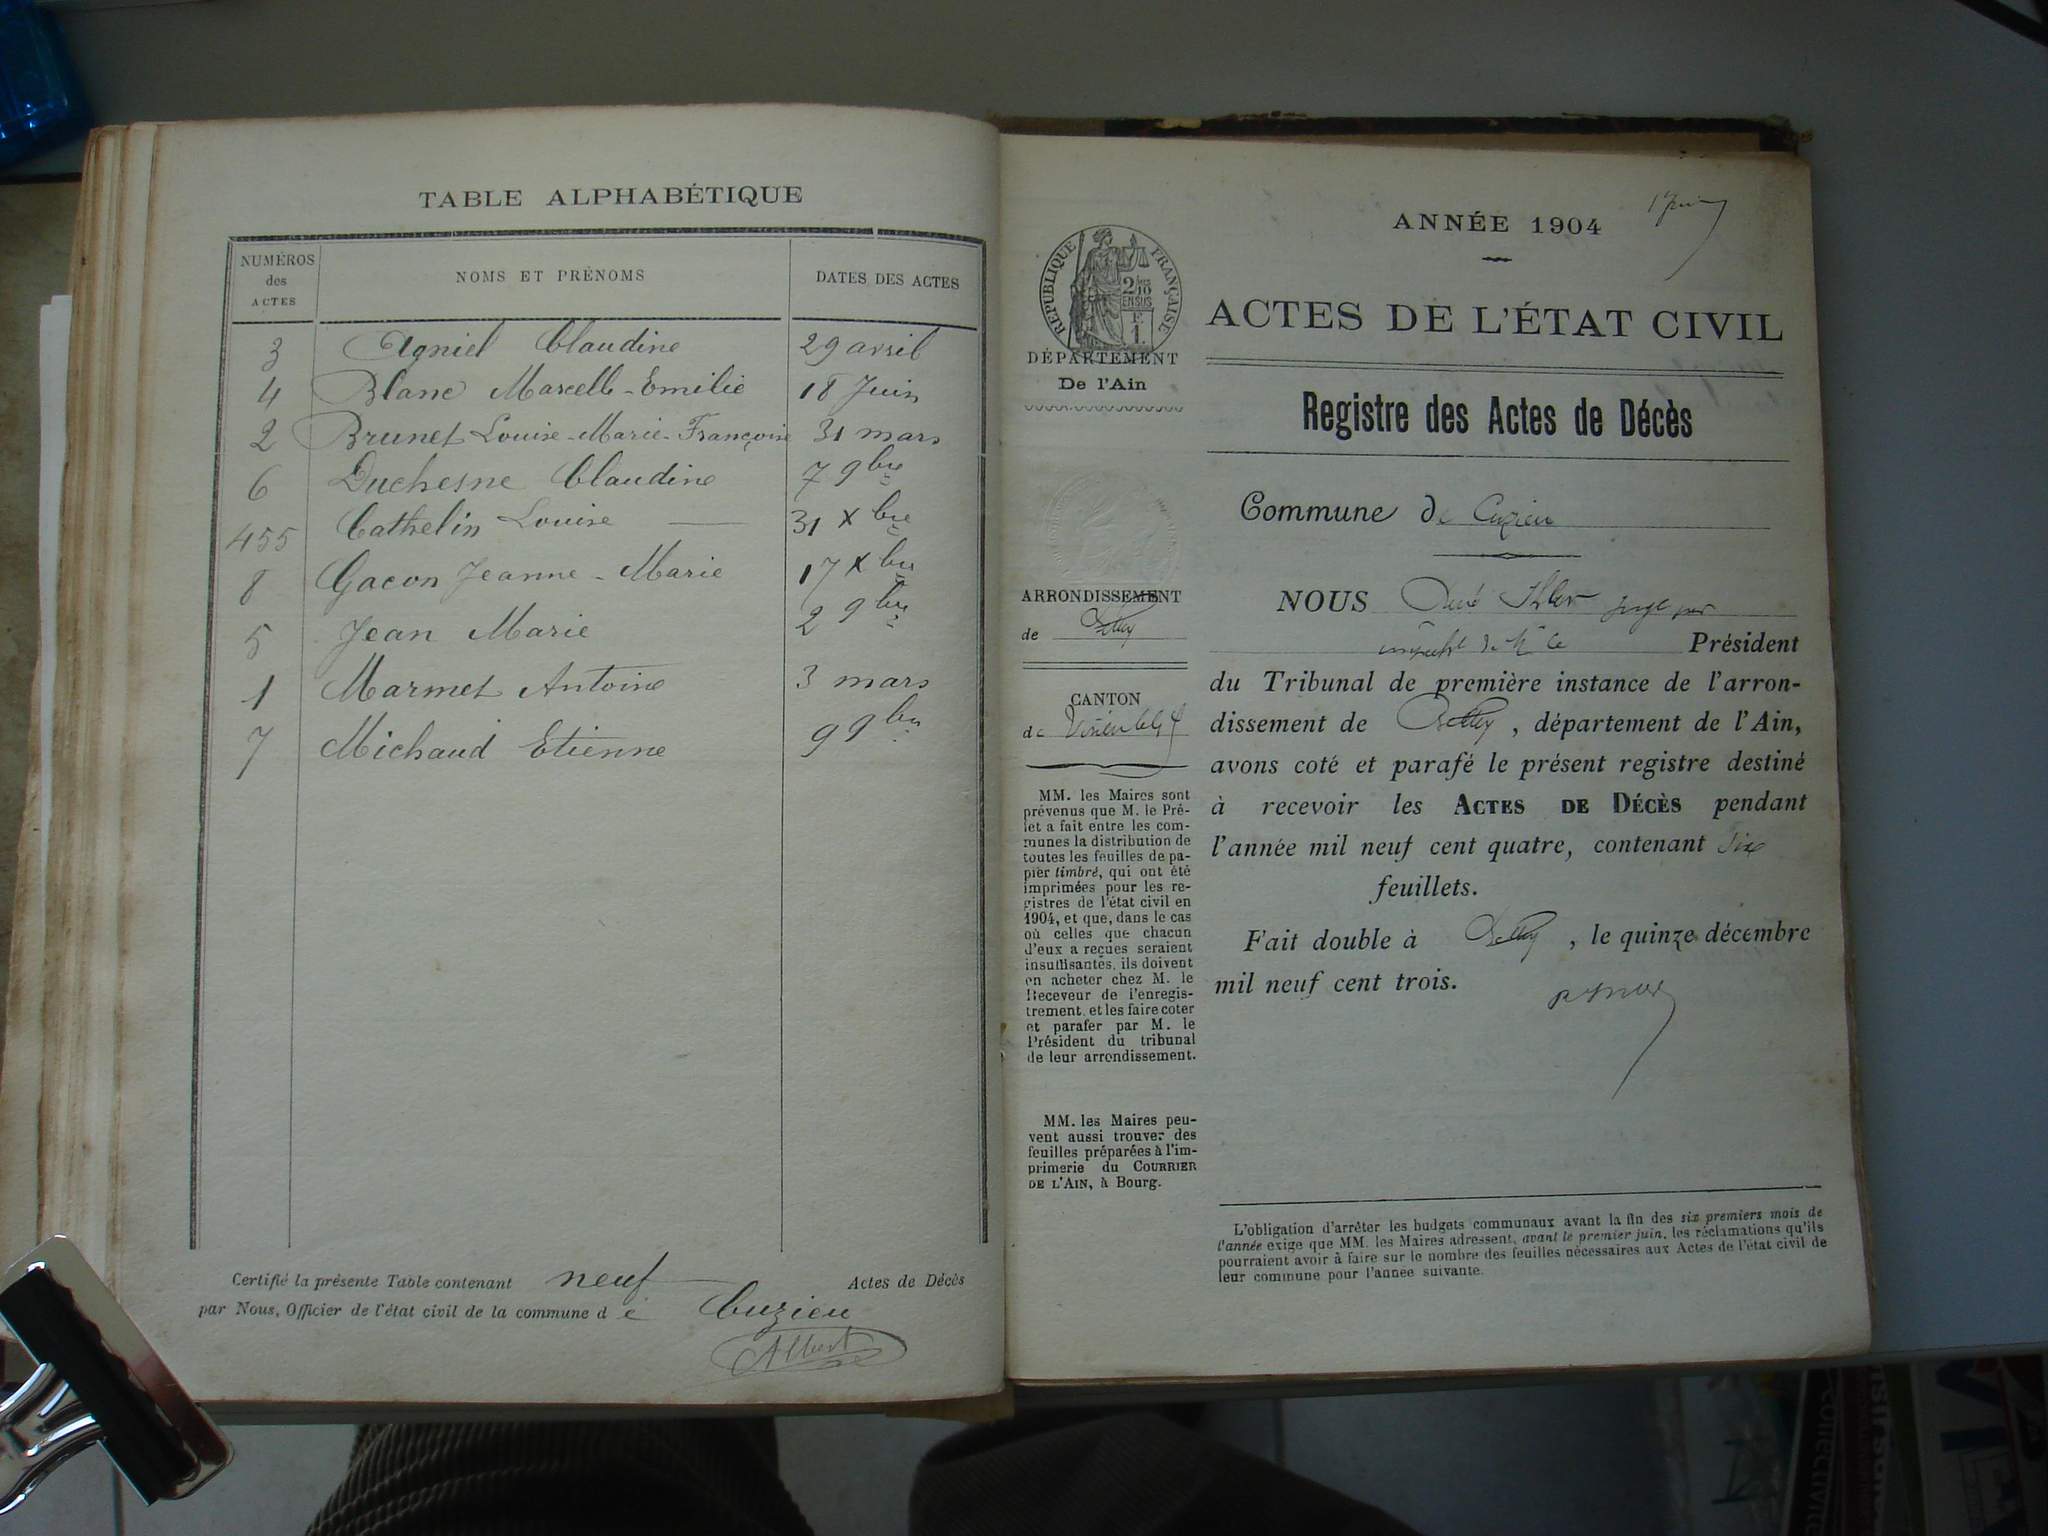 TABLE ALPHABÉTIQUE
NUMÉROS des ACTES NOMS ET PRÉNOMS DATES DES ACTES
3 Agniel Claudine 29 avril
4 Blanc Marcelle-Emilie 18 Juin
2 Brunet Louise-Marie-Françoise 31 mars
6 Duchesne Claudine 7 9bre
455 Cathelin Louise 31 Xbre
8 Gacon Jeanne-Marie 17 Xbre
5 Jean Marie 2 9bre
1 Marmet Antoine 3 mars
7 Michaud Etienne 9 9bre
Certifié la présente Table contenant neuf Actes de Décès
par Nous, Officier de l'état civil de la commune de Cuzieu
Albert
ANNÉE 1904
RÉPUBLIQUE FRANÇAISE
ACTES DE L'ÉTAT CIVIL
DÉPARTEMENT
De l'Ain
Registre des Actes de Décès
Commune de Cuzieu
ARRONDISSEMENT
de Belley
CANTON
de
MM. les Maires sont
prévenus que M. le Pré-
fet a fait entre les com-
munes la distribution de
toutes les feuilles de pa-
pier timbré, qui ont été
imprimées pour les re-
gistres de l'état civil en
1904, et que, dans le cas
où celles que chacun
d'eux a reçues seraient
insuffisantes, ils doivent
en acheter chez M. le
Receveur de l'enregis-
trement, et les faire coter
et parafer par M. le
Président du tribunal
de leur arrondissement.
MM. les Maires peu-
vent aussi trouver des
feuilles préparées à l'im-
primerie du COURRIER
DE L'AIN, à Bourg.
NOUS juge par
Président
du Tribunal de première instance de l'arron-
dissement de Belley, département de l'Ain,
avons coté et parafé le présent registre destiné
à recevoir les ACTES DE DÉCÈS pendant
l'année mil neuf cent quatre, contenant six
feuillets.
Fait double à Belley, le quinze décembre
mil neuf cent trois.
L'obligation d'arrêter les budgets communaux avant la fin des six premiers mois de
l'année exige que MM. les Maires adressent, avant le premier juin, les réclamations qu'ils
pourraient avoir à faire sur le nombre des feuilles nécessaires aux Actes de l'état civil de
leur commune pour l'année suivante.